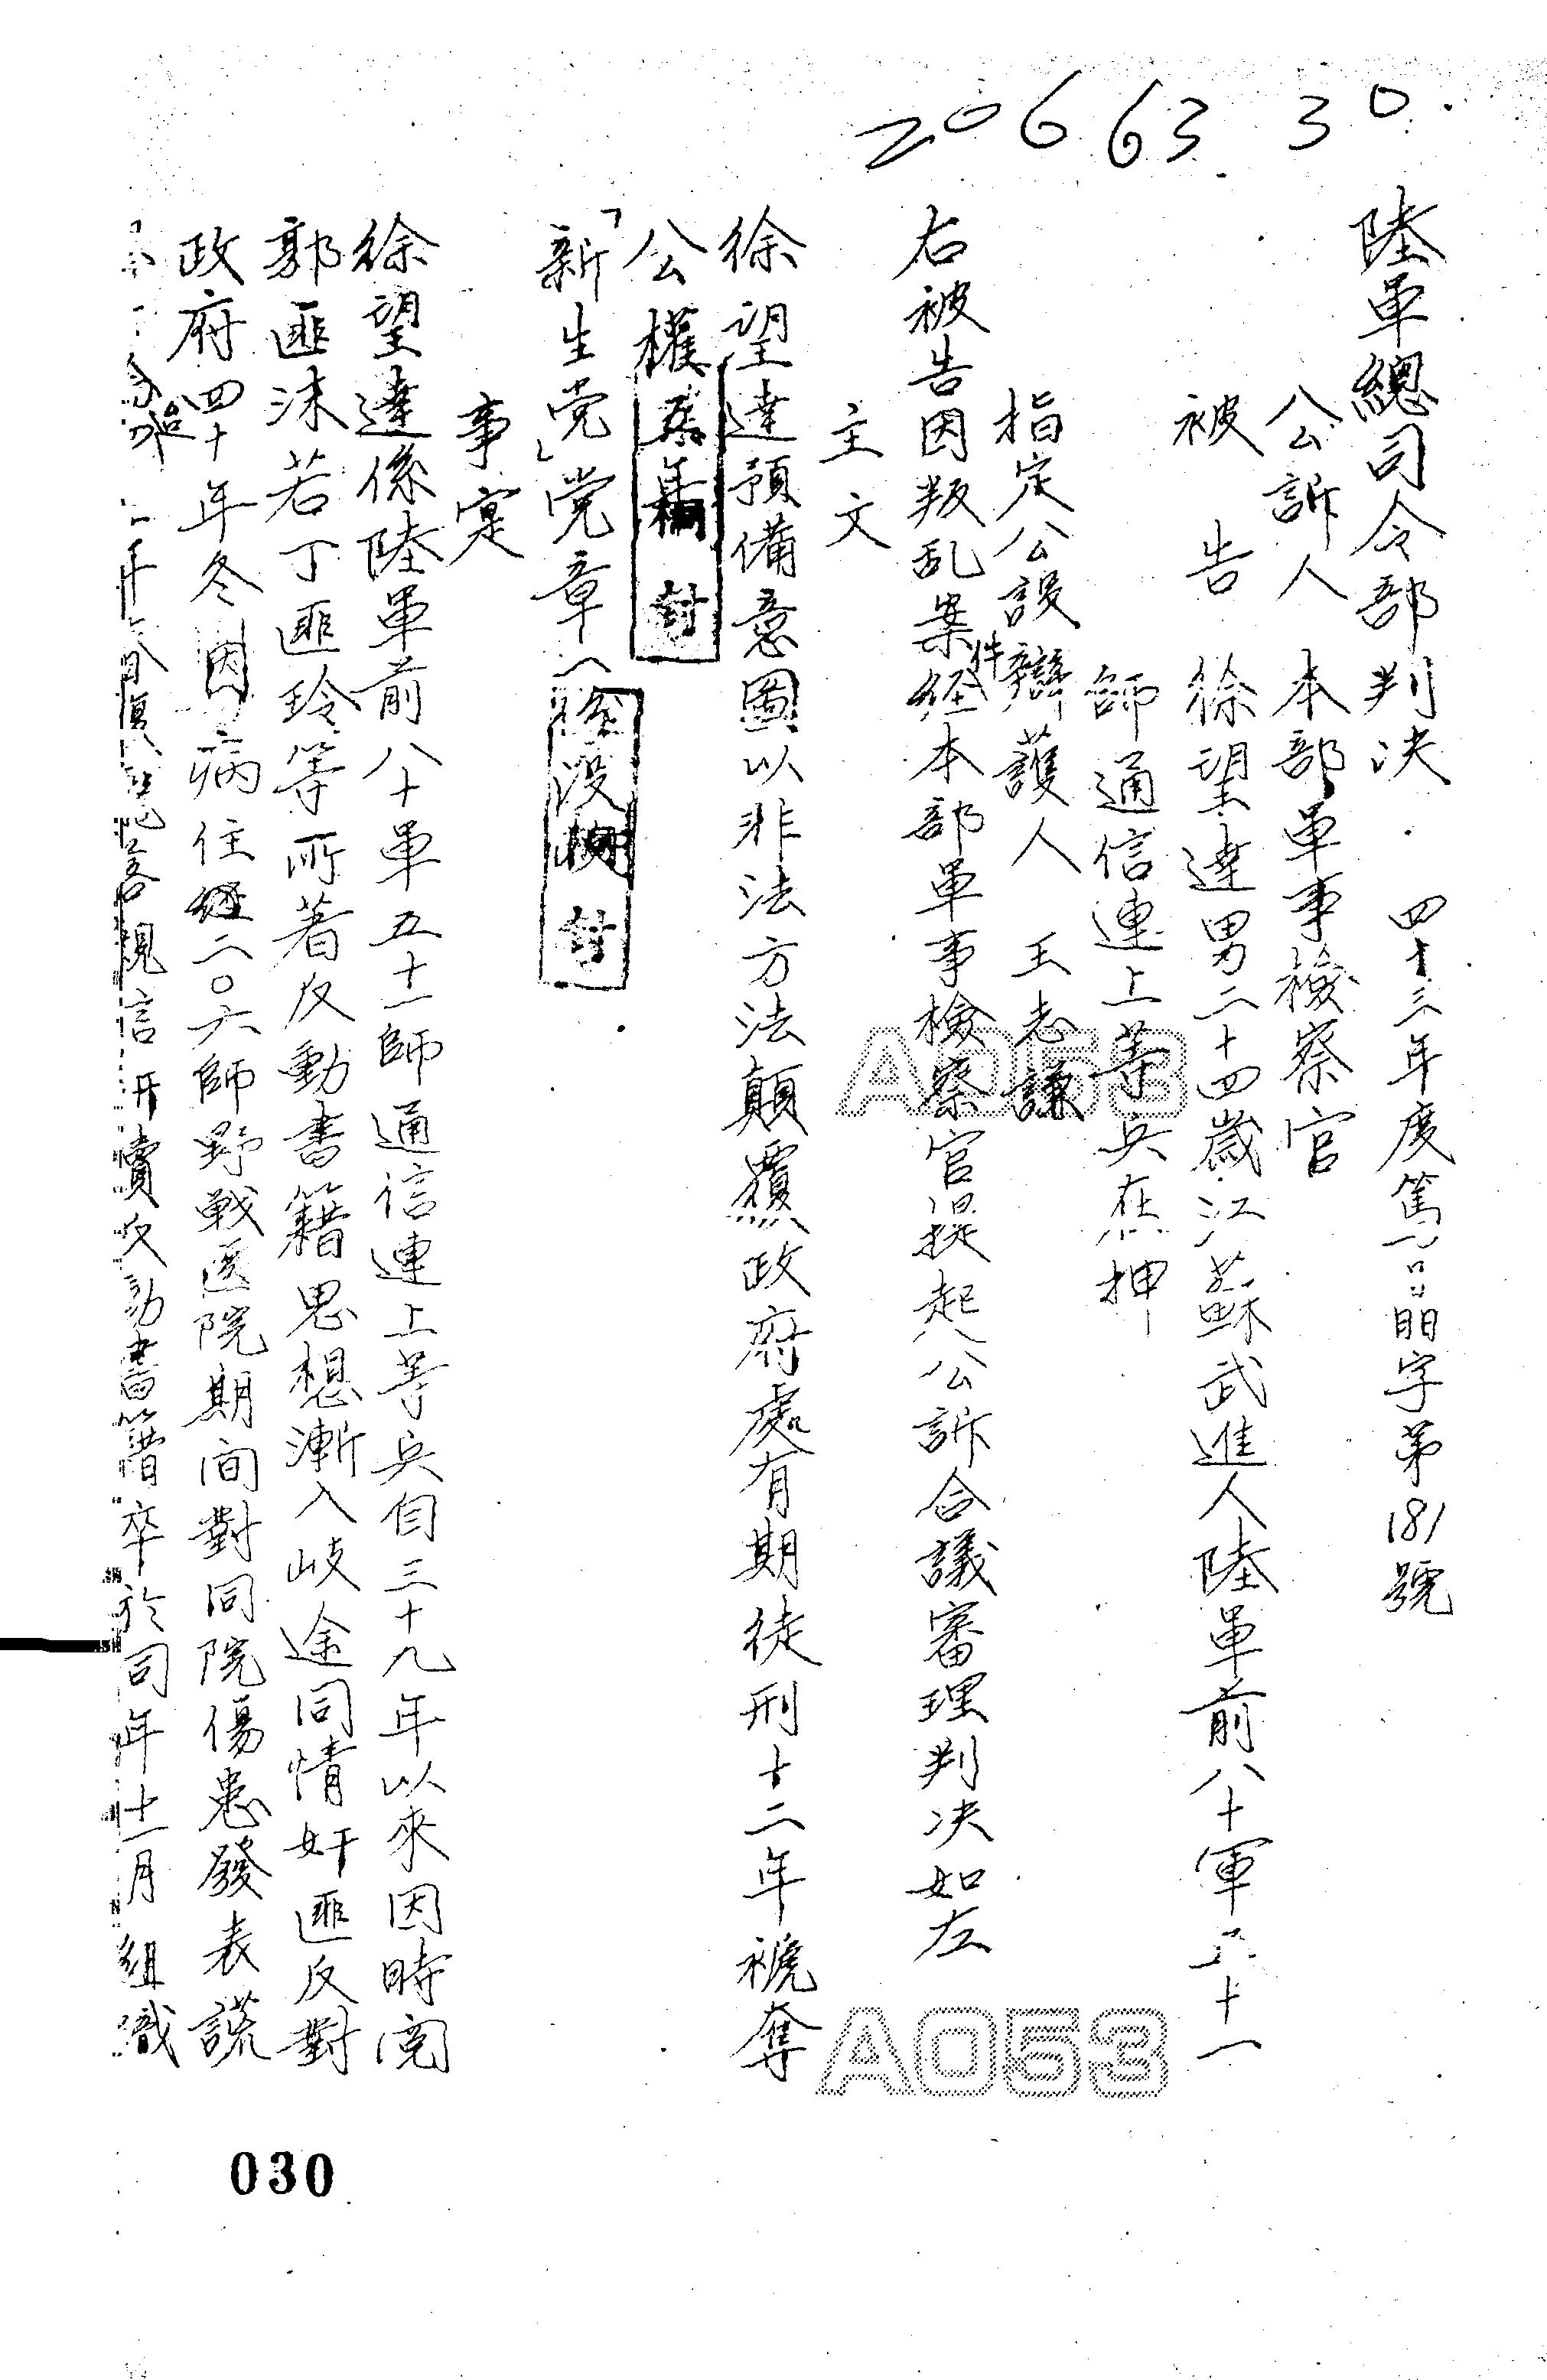 206 63 30.
陸軍總司令部判決 四十三年度篤 晶字第181號
公訴人 本部軍事檢察官
被告 徐望達男二十四歲江蘇武進人陸軍前八十軍五十一
師通信連上等兵在押
指定公設辯護人 王志謙
右被告因叛乱案件經本部軍事檢察官提起公訴合議審理判決如左
主文
徐望達預備意圖以非法方法顛覆政府處有期徒刑十二年褫奪
公權 年
「新生党」党章 沒
事实
徐望達係陸軍前八十軍五十一師通信連上等兵自三十九年以來因時阅
郭匪沫若丁匪玲等所著反動書籍思想漸入歧途同情奸匪反對
政府四十年冬因病住 二〇六師野戰医院期间對同院傷患發表謊
信 賣反動書籍卒於同年十一月組織
A053
A053
030